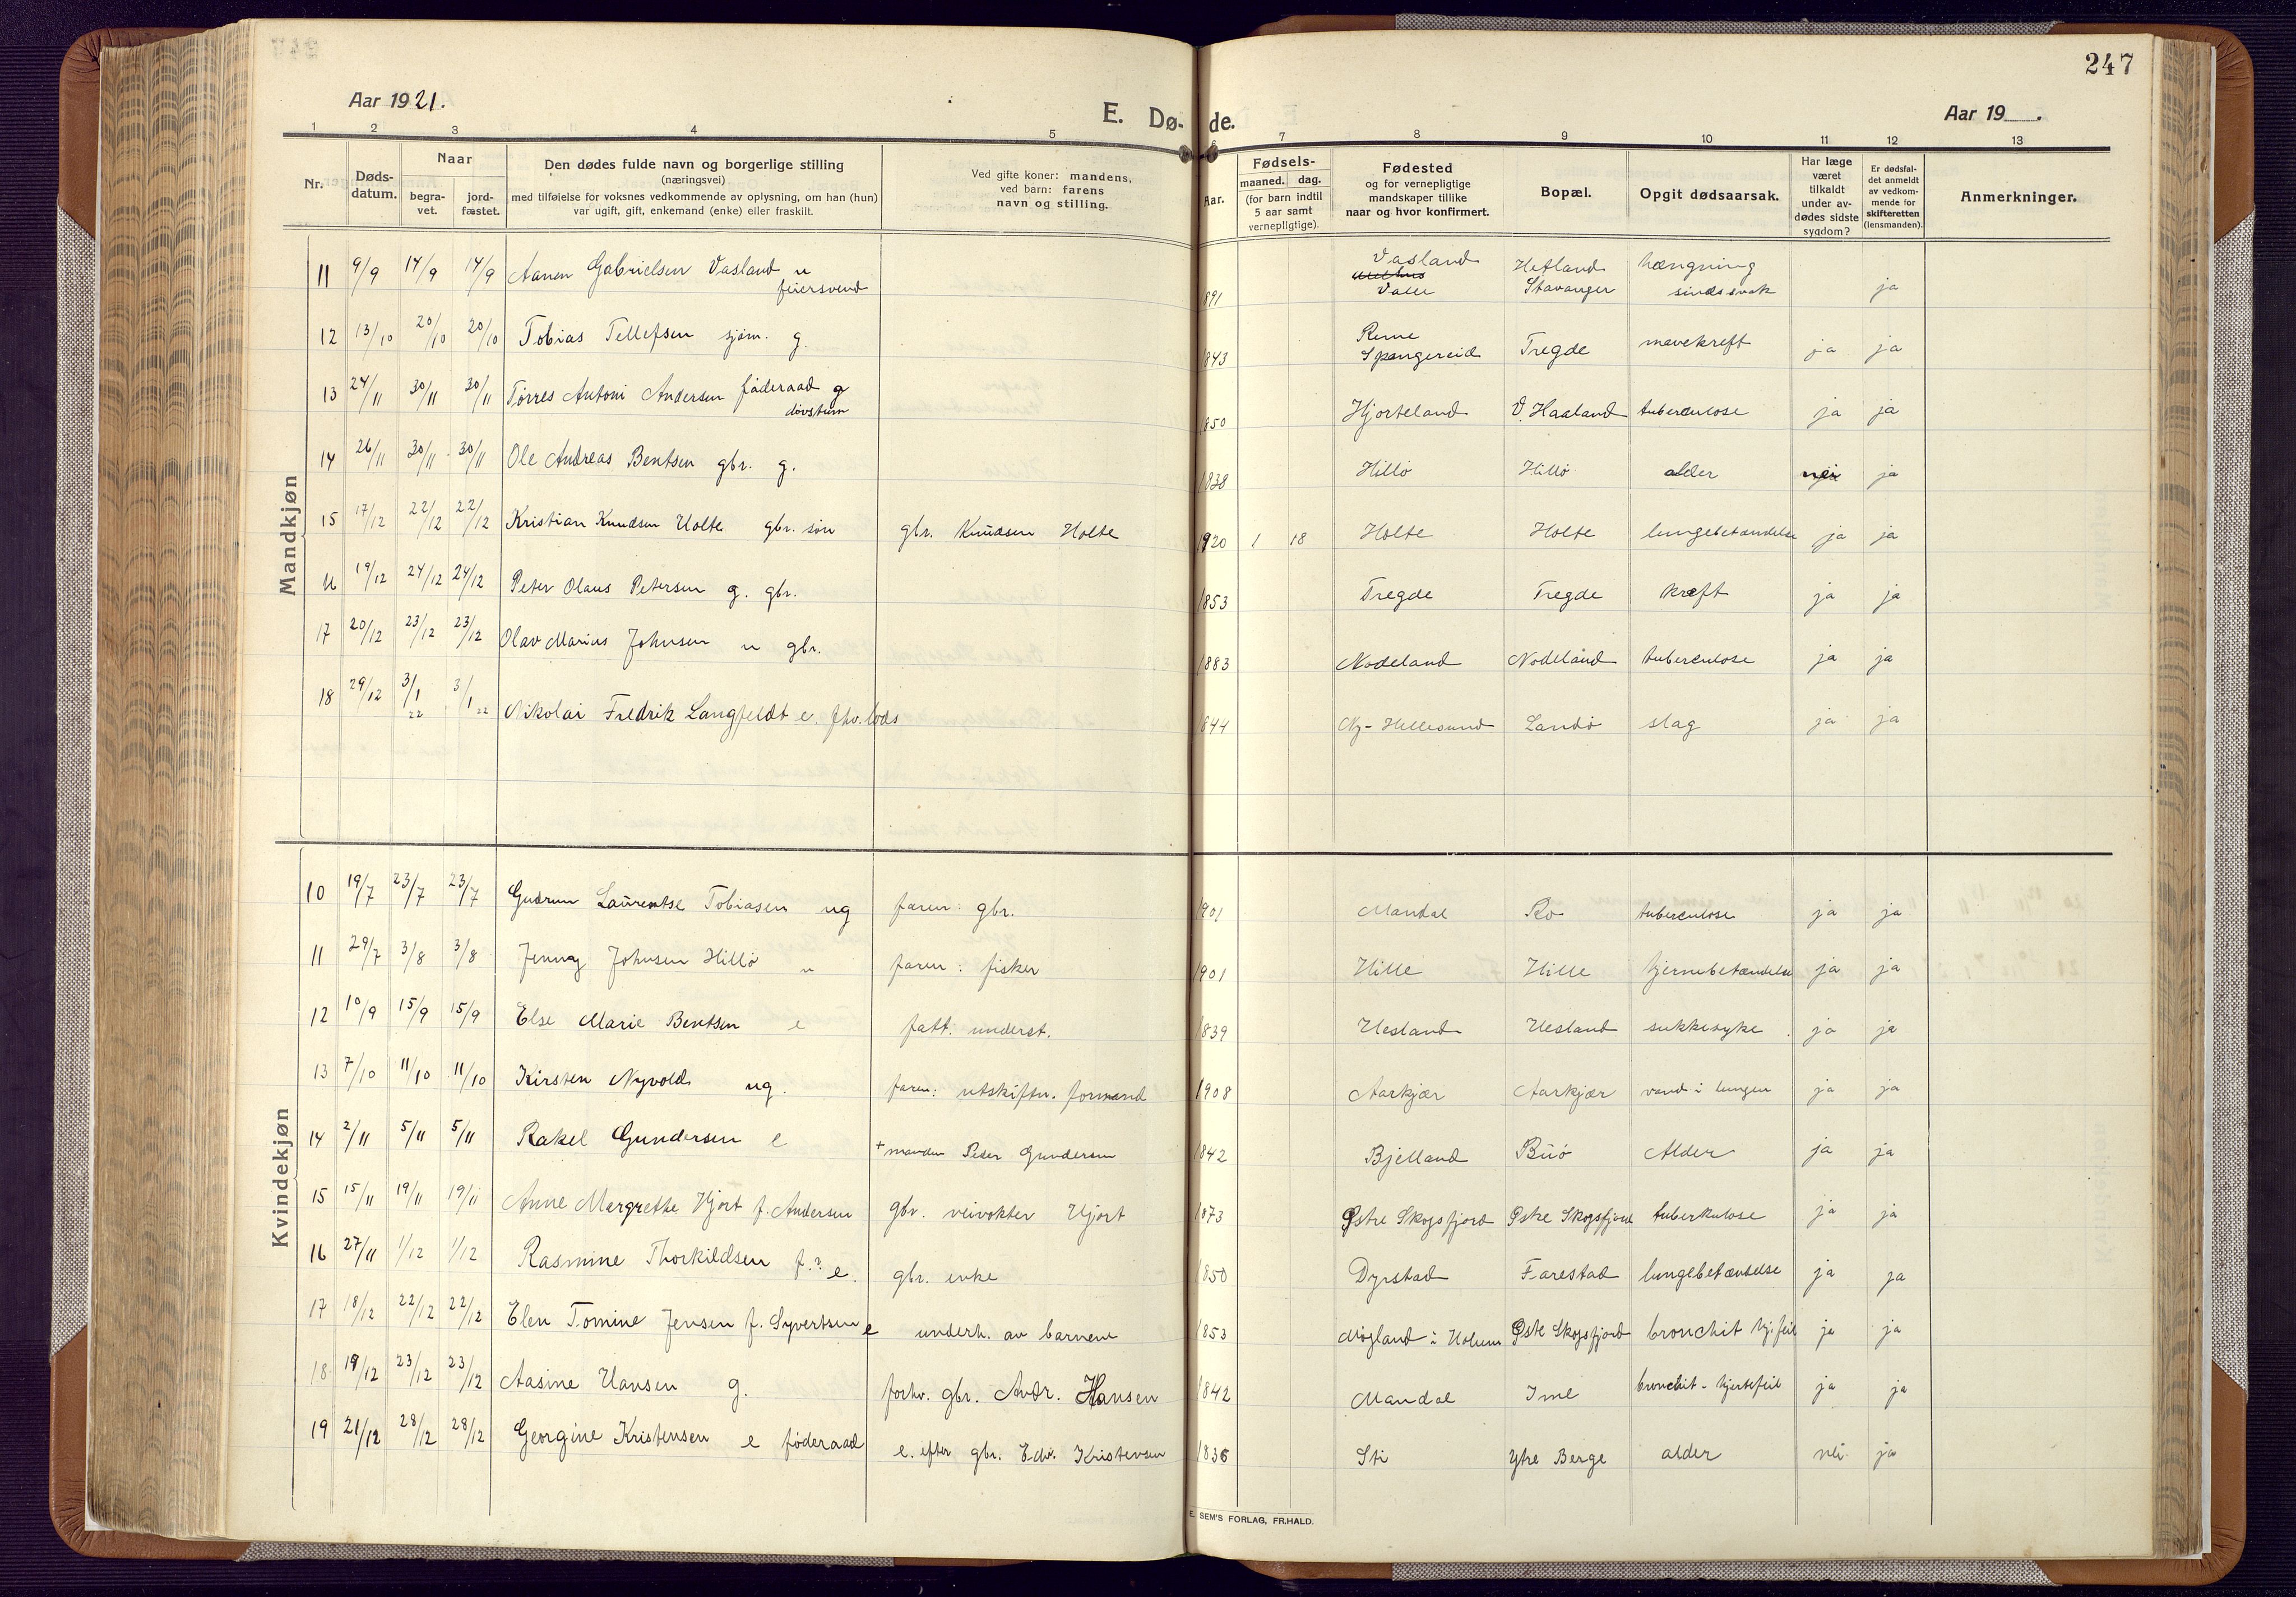 247
Aar 1921.
E. Dø- de.
Aar 19 .
1 2 3 4 5 6 7 8 9 10 11 12 13
Nr.
Døds-
datum.
Naar
begra-
vet.
jord-
fæstet.
Den dødes fulde navn og borgerlige stilling
(næringsvei)
med tilføielse for voksnes vedkommende av oplysning, om han (hun)
var ugift, gift, enkemand (enke) eller fraskilt.
Ved gifte koner: mandens,
ved barn: farens
navn og stilling.
Aar.
Fødsels-
maaned. dag.
(for barn indtil
5 aar samt
vernepligtige).
Fødested
og for vernepligtige
mandskaper tillike
naar og hvor konfirmert.
Bopæl.
Opgit dødsaarsak.
Har læge
været
tilkaldt
under av-
dødes sidste
sygdom?
Er dødsfal-
det anmeldt
av vedkom-
mende for
skifteretten
(lensmanden).
Anmerkninger.
Mandkjøn
11 9/9 14/9 14/9 Aanen Gabrielsen Vasland u feiersvend 891 Vasland Valle Hetland Stavanger hængning sindssvak ja
12 13/10 20/10 20/10 Tobias Tellefsen sjøm. g. 843 Reme Spangereid Tregde mavekreft ja ja
13 24/11 30/11 30/11 Tørres Antoni Andersen føderaad g døvstum 1850 Hjorteland V. Haaland tuberculose ja ja
14 26/11 30/11 30/11 Ole Andreas Bentsen gbr. g. 1838 Hillø Hillø alder nei ja
15 17/12 22/12 22/12 Kristian Knudsen Holte gbr. søn gbr. Knudsen Holte 1920 1 18 Holte Holte lungebetændelse ja ja
16 19/12 24/12 24/12 Peter Olaus Petersen g. gbr. 1853 Tregde Tregde kræft ja ja
17 20/12 23/12 23/12 Olav Marius Johnsen u gbr. 1883 Nodeland Nodeland tuberculose ja ja
18 29/12 3/1 22 3/1 22 Nikolai Fredrik Langfeldt e. fhv. lods 1844 Ny-Hellesund Landø slag ja ja
Kvindekjøn
10 19/7 23/7 23/7 Gudrun Laurentse Tobiasen ug faren: gbr. 1901 Mandal Ro tuberculose ja ja
11 29/7 3/8 3/8 Jenny Johnsen Hillø u faren: fisker 1901 Hille Hille hjernebetændelse ja ja
12 10/9 15/9 15/9 Else Marie Bentsen e fatt. underst. 1839 Uesland Uesland sukkesyke ja ja
13 7/10 11/10 11/10 Kirsten Nyvold ug. faren: utskiftn. formand 1908 Aarkjær Aarkjær vand i lungen ja ja
14 2/11 5/11 5/11 Rakel Gundersen e + manden Peder Gundersen 1842 Bjelland Buø Alder ja ja
15 15/11 19/11 19/11 Anne Margrethe Hjort f. Andersen gbr. veivokter Hjort 1873 Østre Skogsfjord Østre Skogsfjord tuberkulose ja ja
16 27/11 1/12 1/12 Rasmine Thorkildsen f. ? e. gbr. enke 1850 Dyrstad Farestad lungebetændelse ja ja
17 18/12 22/12 22/12 Elen Tomine Jensen f. Syvertsen e underh. av barnene 1853 Møgland i Holum Øste Skogsfjord bronchit hj.feil ja ja
18 19/12 23/12 23/12 Aasine Hansen g. forhv. gbr. Andr. Hansen 1842 Mandal Ime bronchit - hjertefeil ja ja
19 21/12 28/12 28/12 Georgine Kristensen e føderaad e. efter gbr. Edv. Kristensen 1836 Sti Ytre Berge alder nei. ja
E. SEM'S FORLAG, FR.HALD.